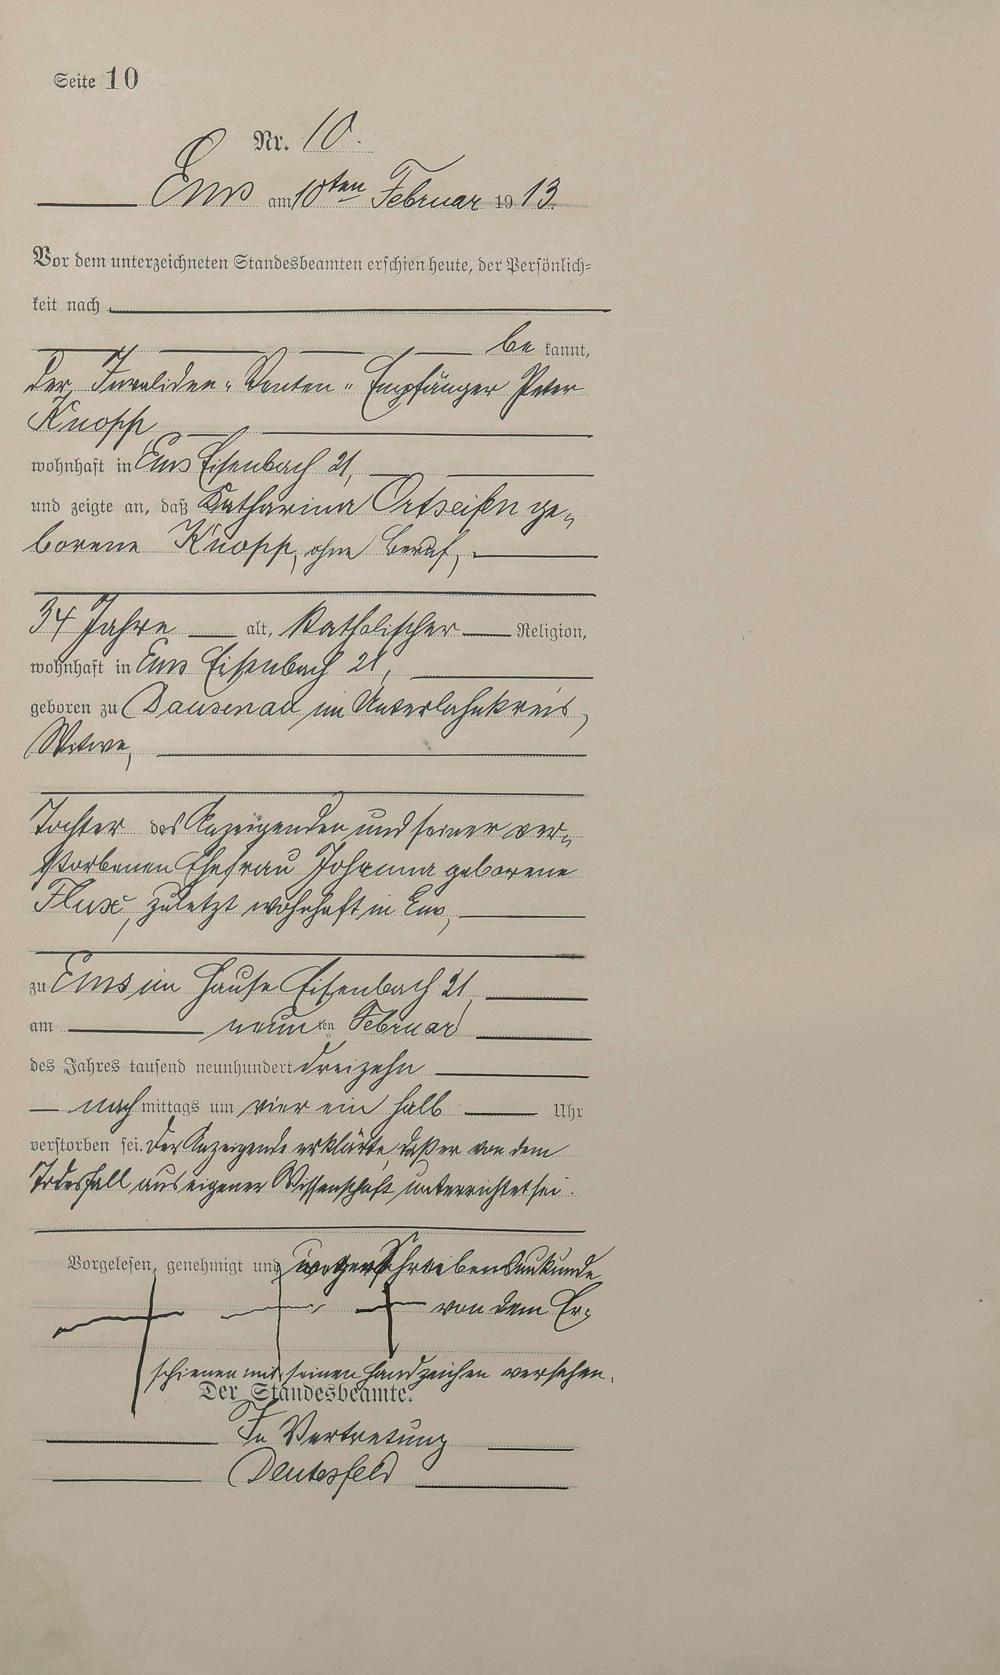 Seite 10
Nr. 10.
Ems am 10ten Februar 1913.
Vor dem unterzeichneten Standesbeamten erschien heute, der Persönlich=
keit nach
be kannt,
der Invaliden-Renten-Empfänger Peter
Knopp
wohnhaft in Ems Eisenbach 21,
und zeigte an, daß Katharina Ortseifen ge„
borene Knopp, ohne Beruf,
34 Jahre alt, katholischer Religion,
wohnhaft in Ems Eisenbach 21,
geboren zu Dausenau im Unterlahnkreis,
Witwe,
Tochter des Anzeigenden und seiner ver„
storbenen Ehefrau Johanna geborene
Flux, zuletzt wohnhaft in Ems,
zu Ems im Hause Eisenbach 21
am neunten Februar
des Jahres tausend neunhundert dreizehn
nach mittags um vier ein halb Uhr
verstorben sei. Der Anzeigende erklärte, daß er von dem
Todesfall aus eigener Wissenschaft unterrichtet sei.
Vorgelesen, genehmigt und wegen Schreibensunkunde
von dem Er=
schienenen mit seinen Handzeichen versehen.
Der Standesbeamte.
In Vertretung